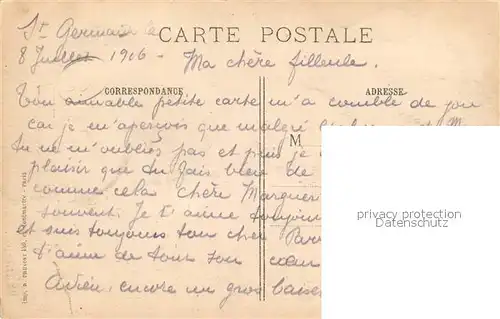 St Germain le
CARTE POSTALE
8 Juillet 1916 - Ma chère filleule.
CORRESPONDANCE
ADRESSE
Ton aimable petite carte m'a comblé de joie
car je m'aperçois que malgré
tu ne m'oublies pas et puis je
M
plaisir que tu fais bien de
comme cela chère Marguer
souvent. Je t'aime toujours
et suis toujours ton cher Parr
t'aime de tout son cœur
Adieu, encore un gros baiser
privacy protection
oldthing.de